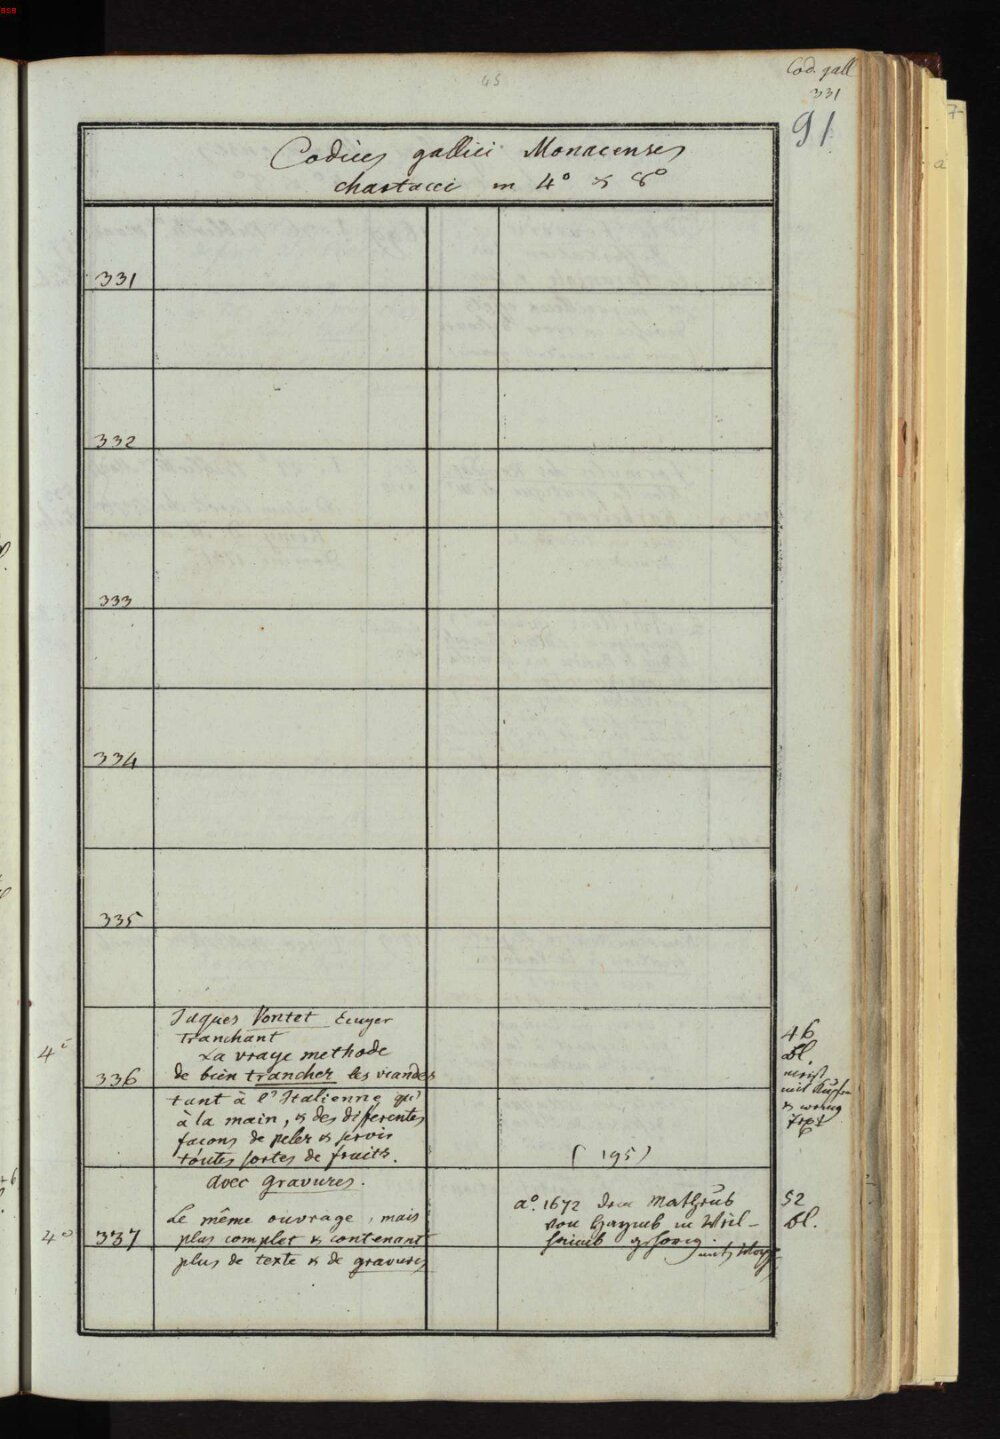 45
Cod. gall
331
91
Codices gallici Monacenses
chartacei in 4° & 8°
331
332
333
334
335
Jaques Vontet Ecuyer
Tranchant
La vraye methode
4°
336
de bien trancher les viandes
tant à l'Italienne qu'
à la main, & des differentes
façons de peler & servir
toutes sortes de fruits.
avec gravures.
(195)
46
Bl.
meist
mit Kupfern
& wenig
Text
4°
337
Le même ouvrage, mais
plus complet & contenant
plus de texte & de gravures
a° 1672 dem Matheus
von
52
Bl.